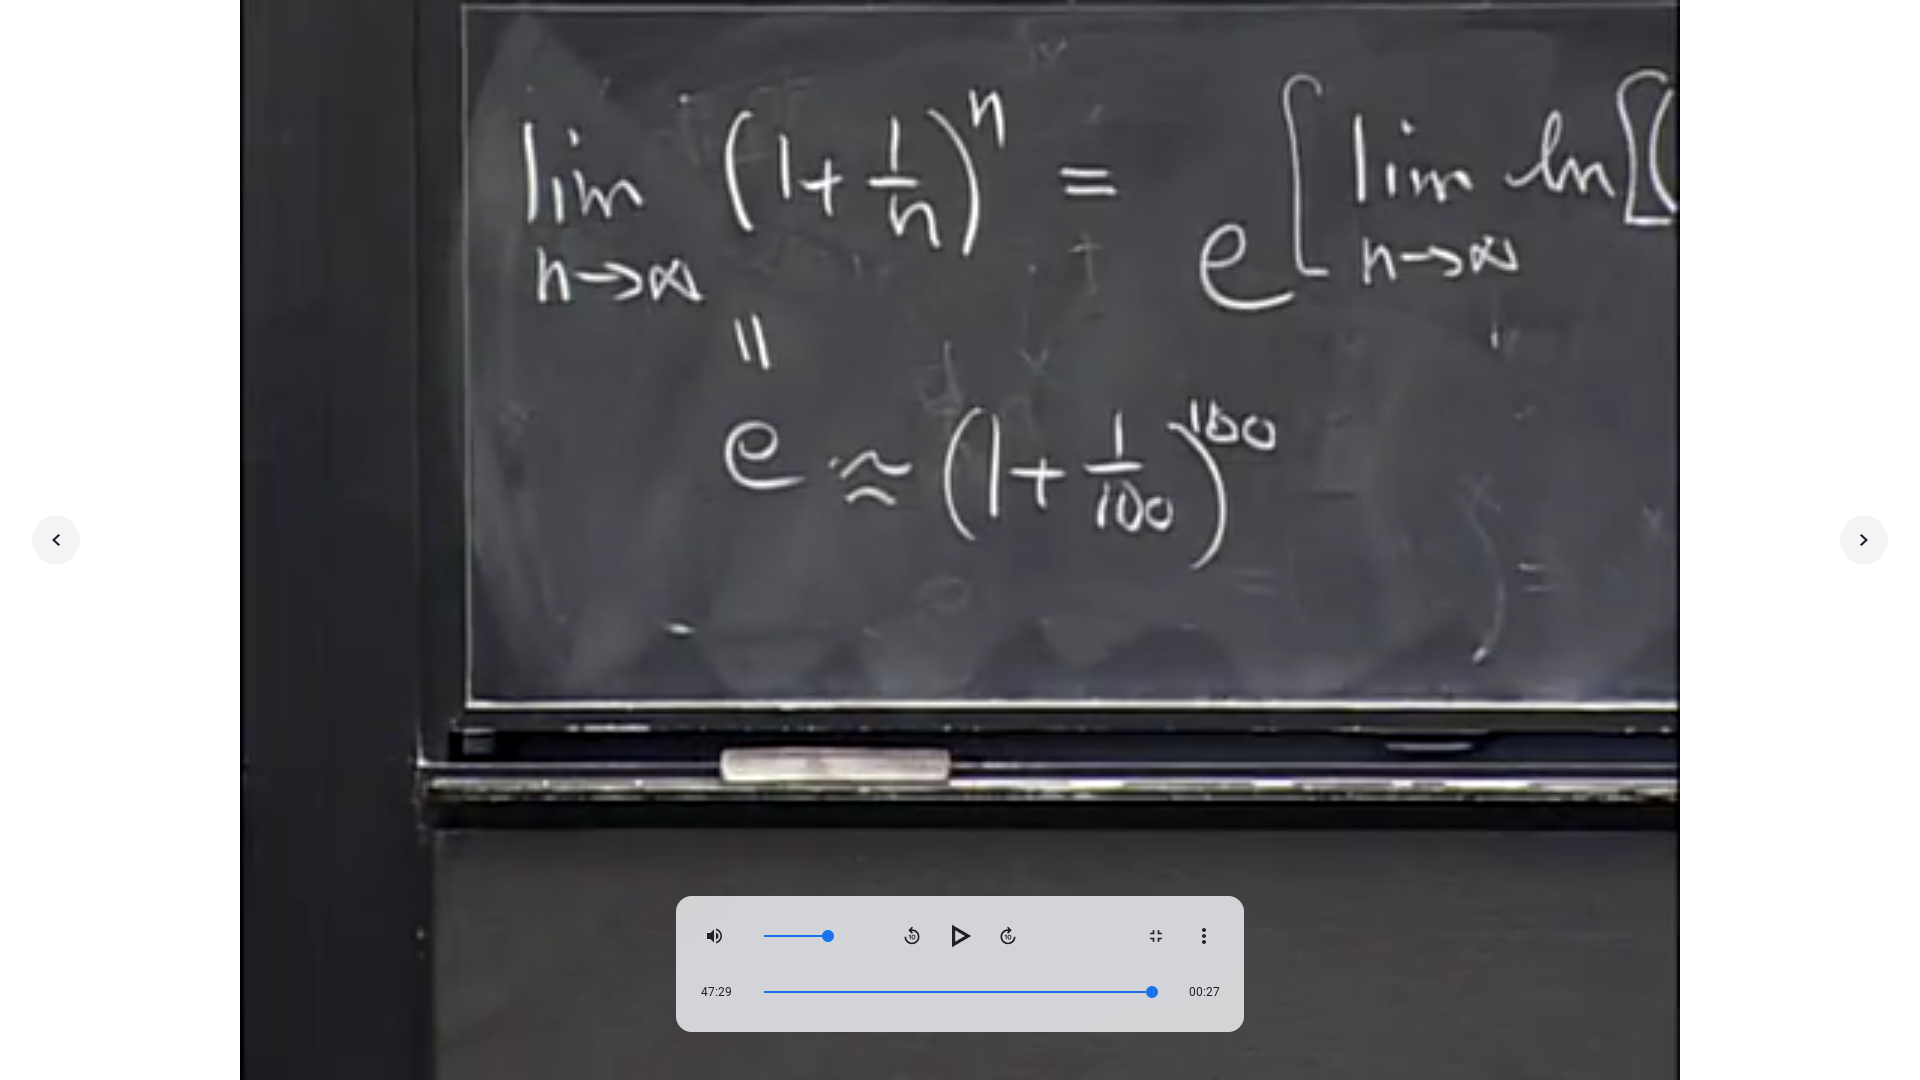 lim (1 + 1/n)^n = e^[lim ln[(
n→∞ n→∞
||
e ≈ (1 + 1/100)^100
47:29 00:27